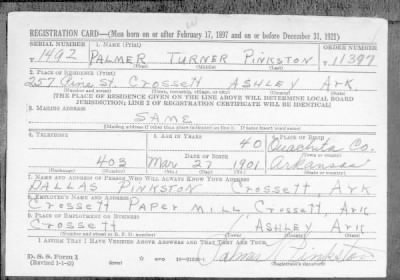 REGISTRATION CARD—(Men born on or after February 17, 1897 and on or before December 31, 1921)
SERIAL NUMBER 1. NAME (Print) ORDER NUMBER
1492 PALMER TURNER PINKSTON 11397
(First) (Middle) (Last)
2. PLACE OF RESIDENCE (Print)
257 Pine St. Crossett ASHLEY Ark.
(Number and street) (Town, township, village, or city) (County) (State)
[THE PLACE OF RESIDENCE GIVEN ON THE LINE ABOVE WILL DETERMINE LOCAL BOARD
JURISDICTION; LINE 2 OF REGISTRATION CERTIFICATE WILL BE IDENTICAL]
3. MAILING ADDRESS
SAME
[Mailing address if other than place indicated on line 2. If same insert word same]
4. TELEPHONE 5. AGE IN YEARS 6. PLACE OF BIRTH
40 Ouachita Co.
DATE OF BIRTH
403 Mar 27 1901 Arkansas
(Exchange) (Number) (Mo.) (Day) (Yr.) (State or country)
7. NAME AND ADDRESS OF PERSON WHO WILL ALWAYS KNOW YOUR ADDRESS
DALLAS PINKSTON Crossett, Ark
8. EMPLOYER'S NAME AND ADDRESS
Crossett Paper Mill Crossett, Ark
9. PLACE OF EMPLOYMENT OR BUSINESS
Crossett Ashley Ark
(Number and street or R. F. D. number) (Town) (County) (State)
I AFFIRM THAT I HAVE VERIFIED ABOVE ANSWERS AND THAT THEY ARE TRUE.
D. S. S. Form 1
(Revised 1-1-42) (over) Palmer Pinkston
(Registrant's signature)